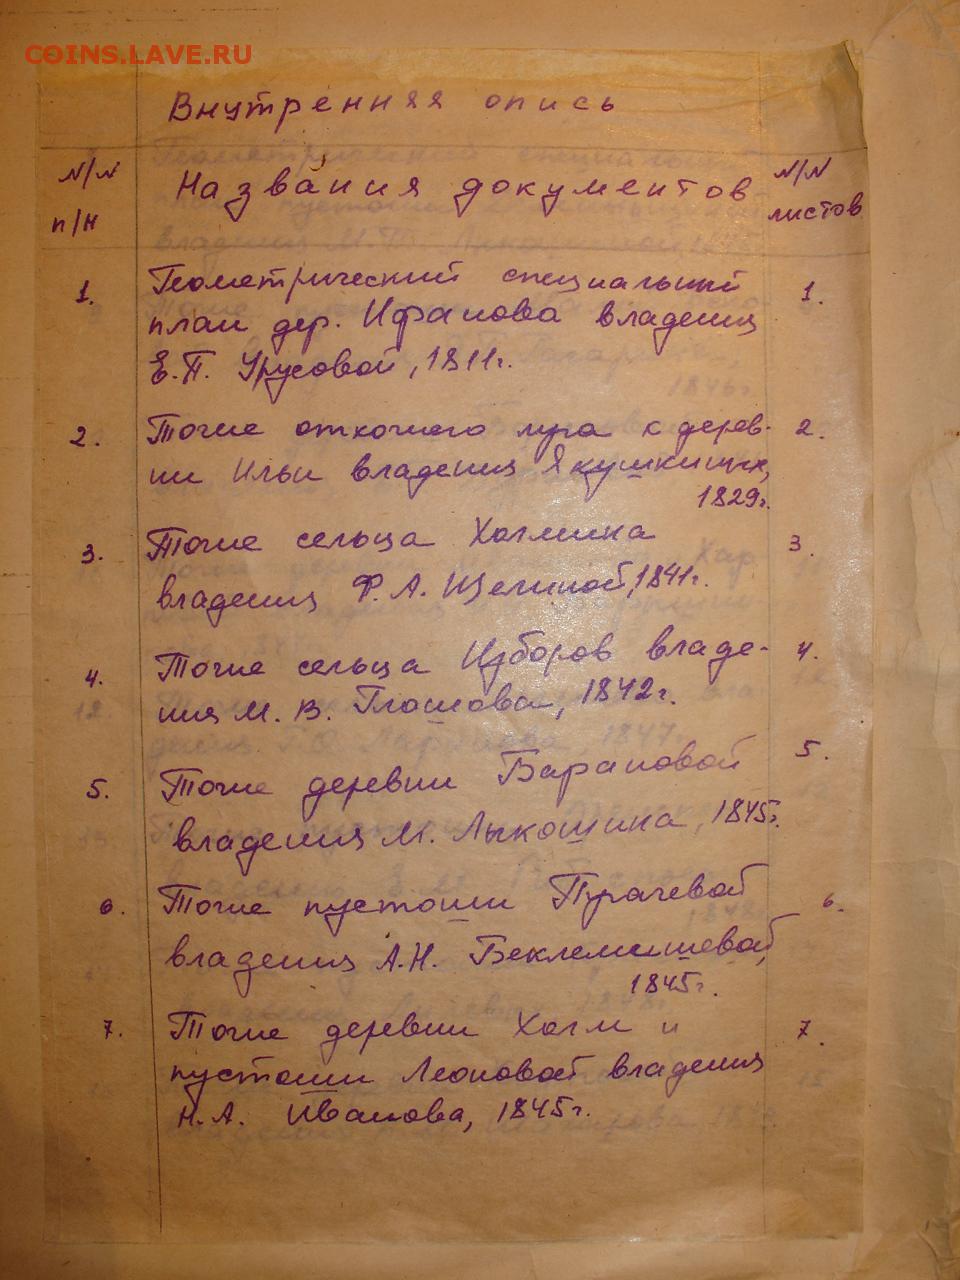 COINS.LAVE.RU
Внутренняя опись
N/N Названия документов N/N
п/н листов
1. Геометрический специальный 1.
план дер. Ифанова владения
Е.П. Урусовой, 1811г.
2. Тоже отхожего луга к дерев- 2.
ни Ильи владения Якушкиных,
1829г.
3. Тоже сельца Холмика 3.
владения Ф.А. Щелиной, 1841г.
4. Тоже сельца Изборов владе- 4.
ния М.В. 1842г.
5. Тоже деревни Барановой 5.
владения М. Лыкошина, 1845г.
6. Тоже пустоши Пугачевой 6.
владения А.Н. Беклемишевой,
1845г.
7. Тоже деревни Холм и 7.
пустоши Леоновой владения
Н.А. Иванова, 1845г.